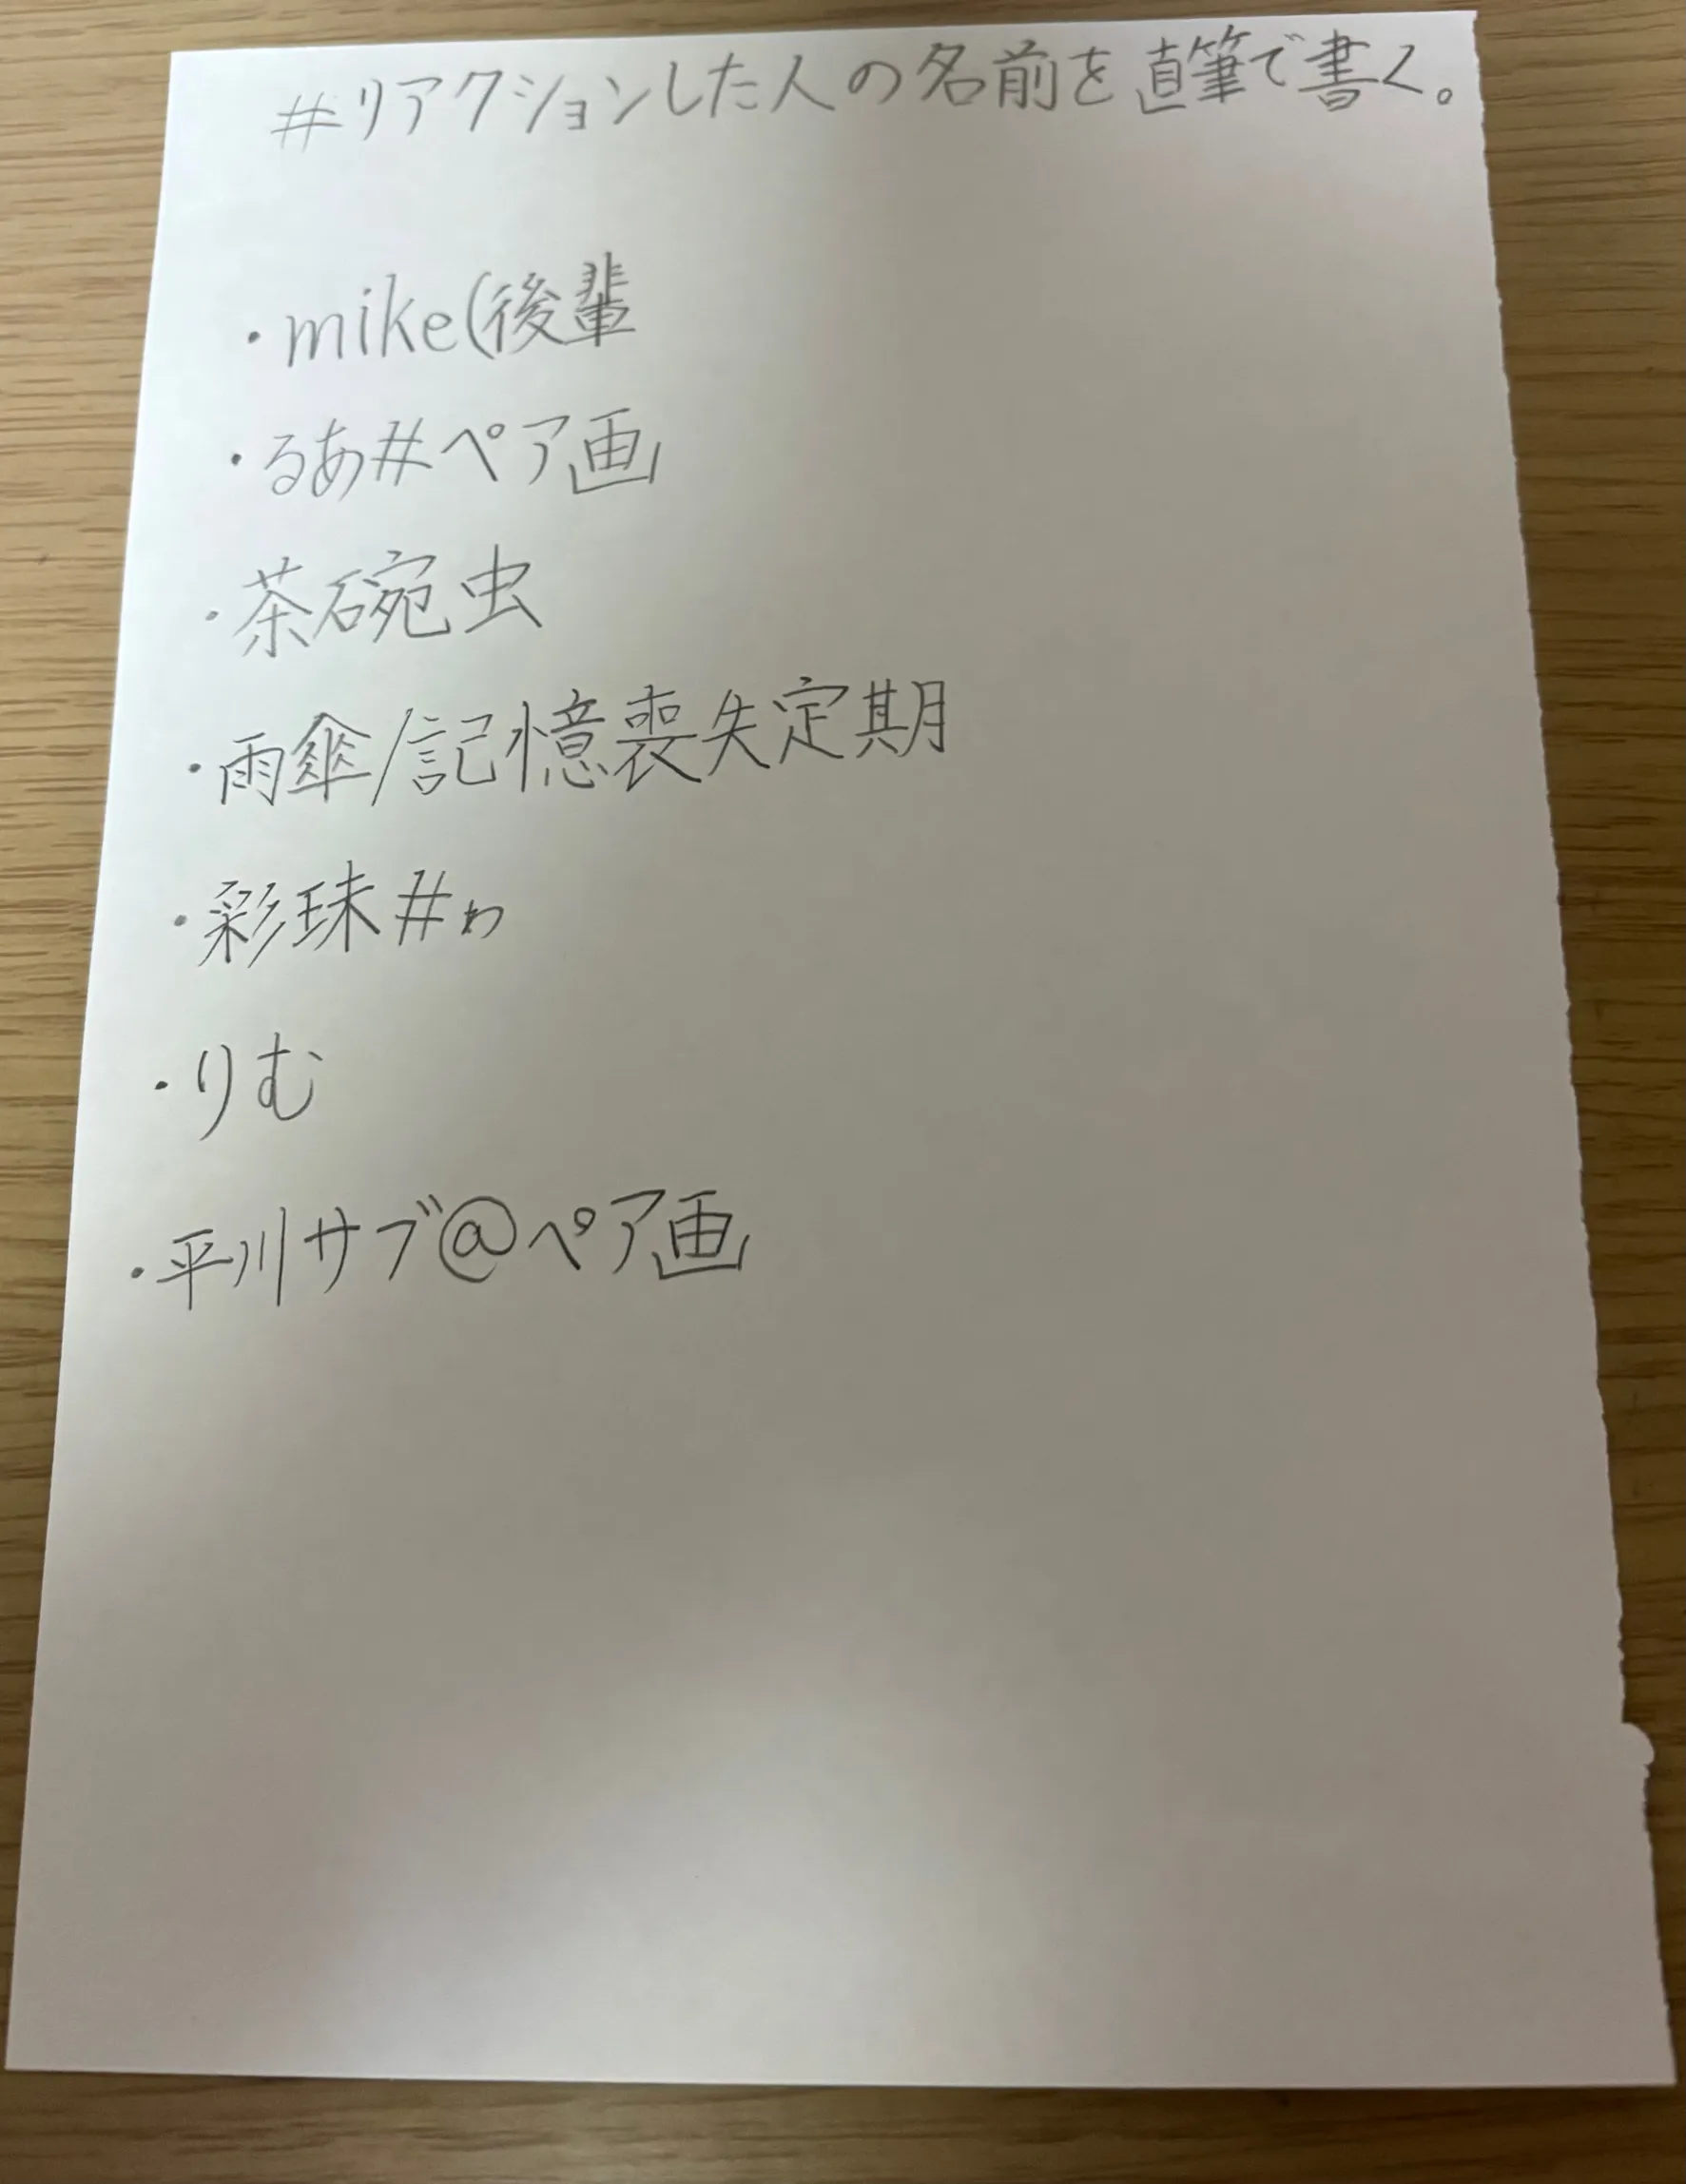 #リアクションした人の名前を直筆で書く。
・mike(後輩
・るあ#ペア画
・茶碗虫
・雨傘/記憶喪失定期
・彩珠#ゎ
・りむ
・平川サブ@ペア画